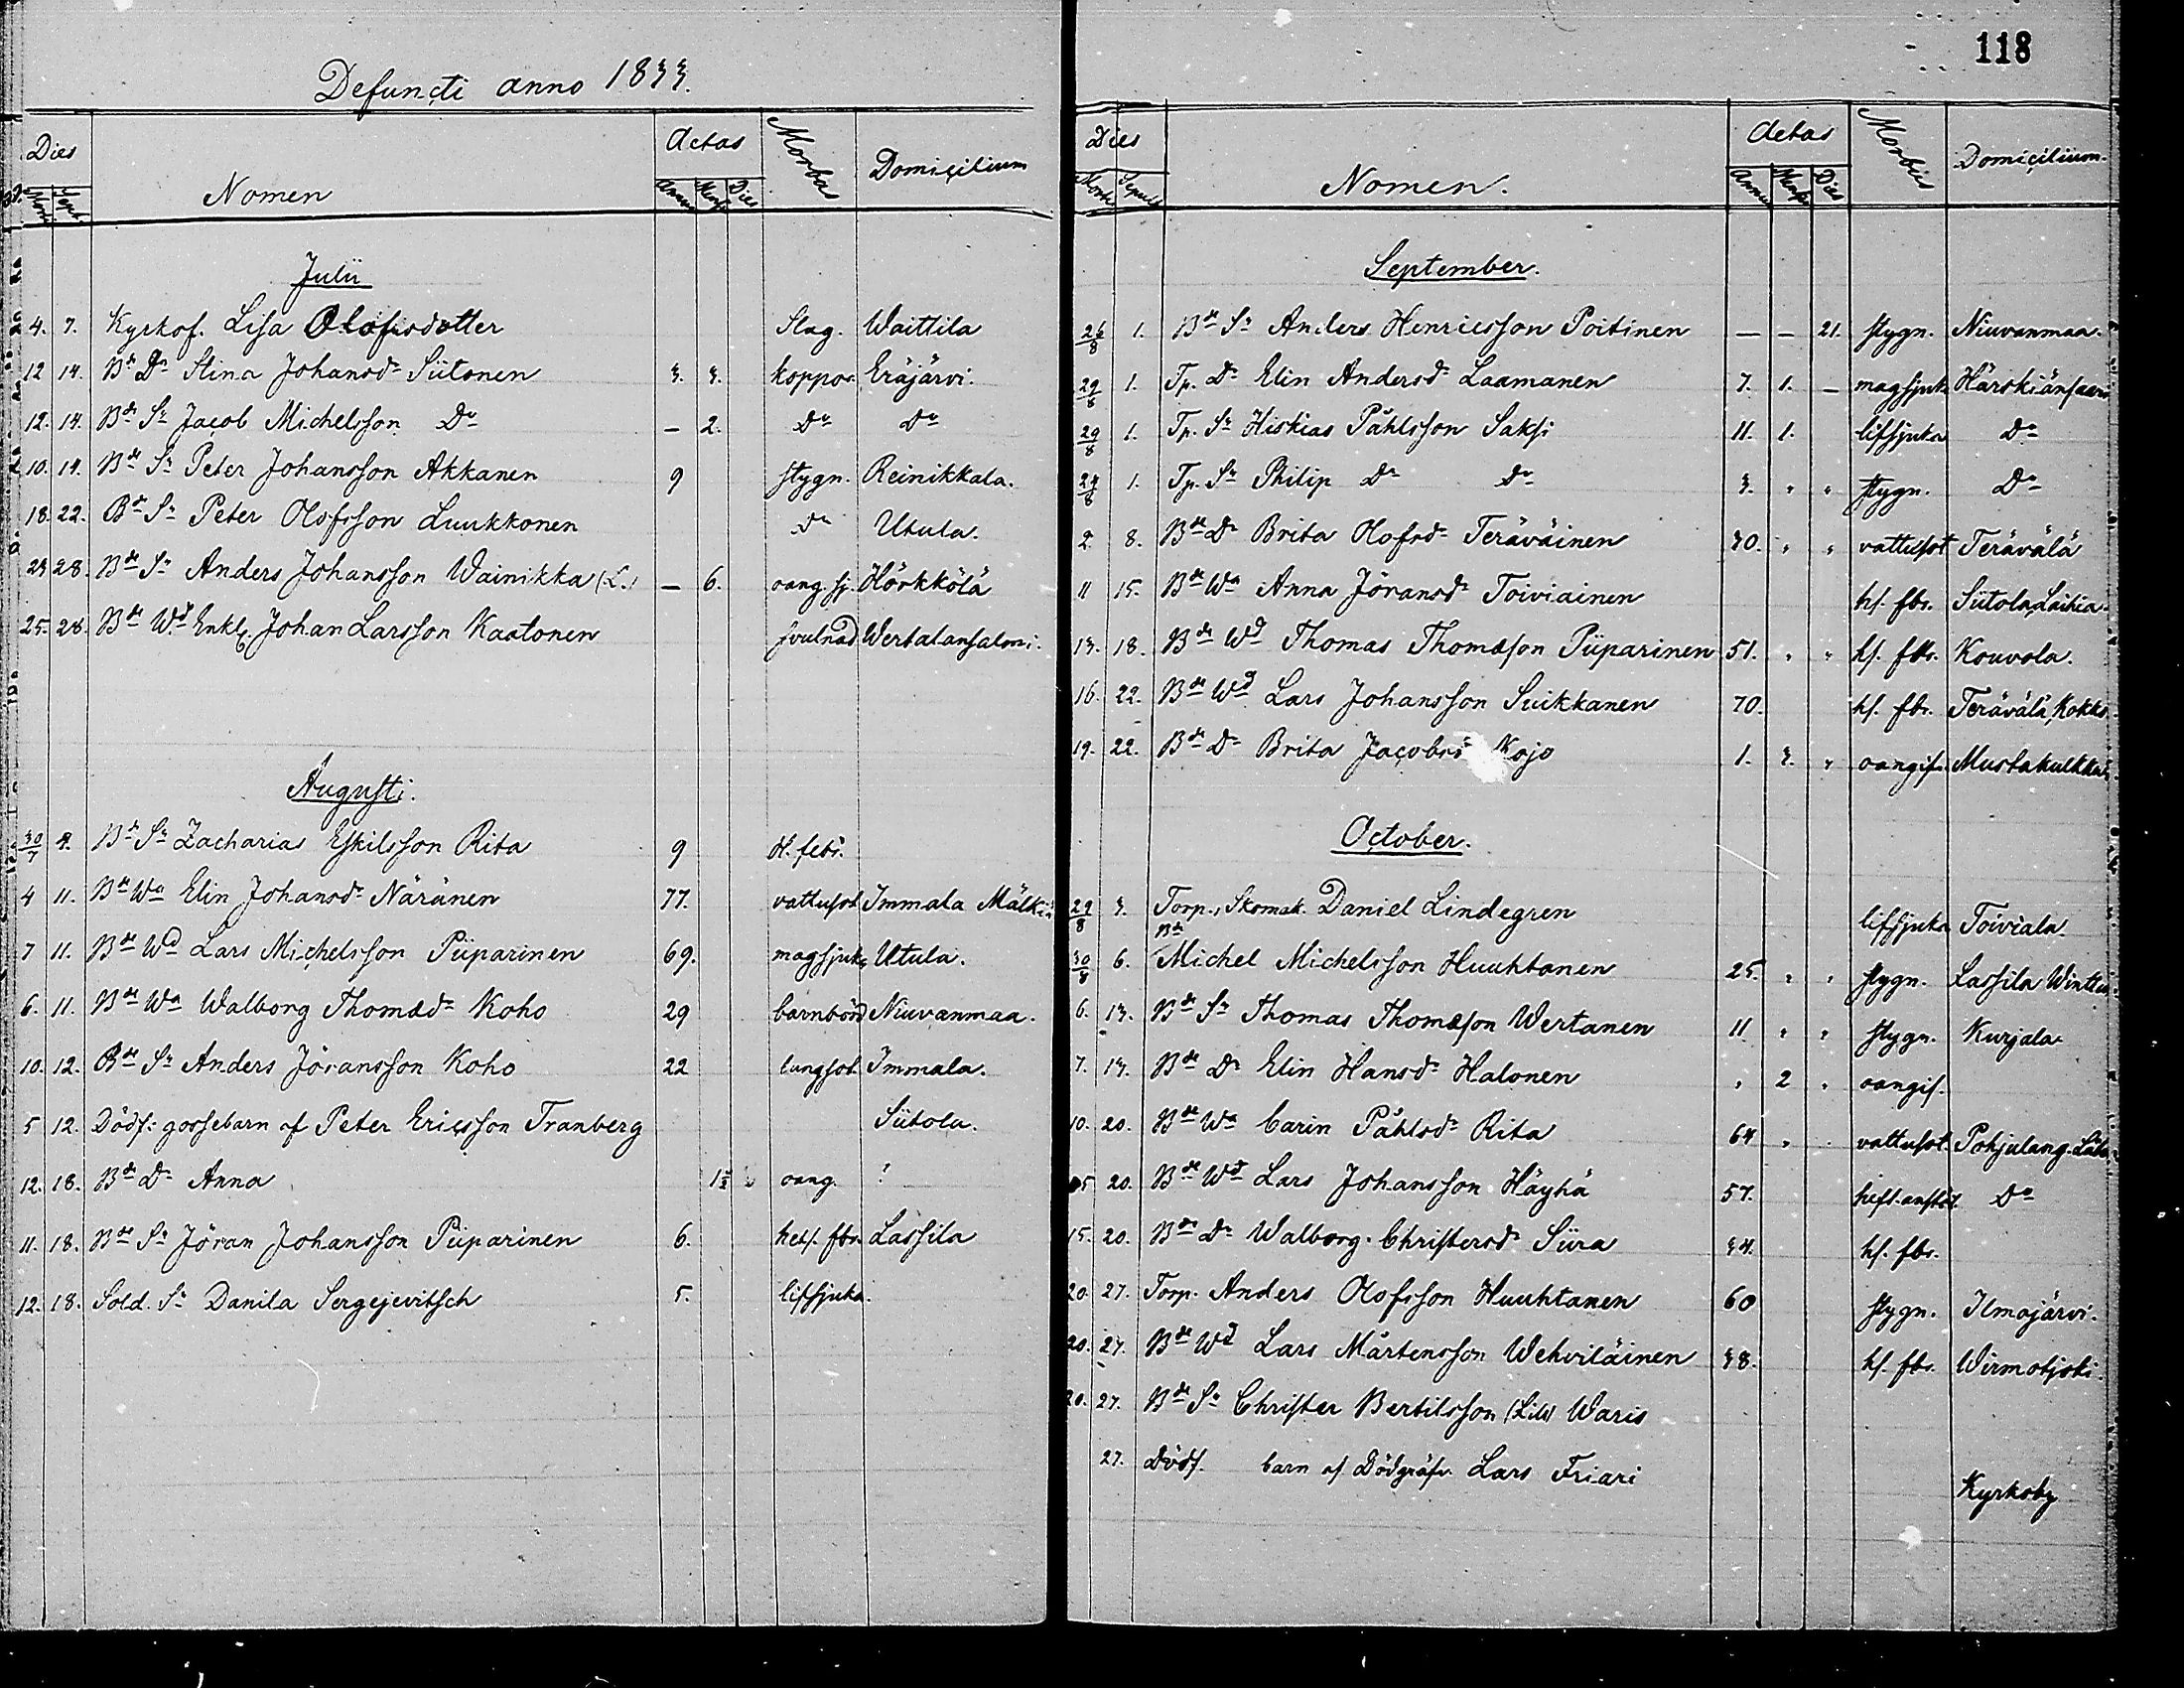 Defuncti anno 1833.
Dies Nomen Aetas Morbus Domicilium
Mort. Sept. Annus Dies
Julii
4. 7. Kyrkof. Lisa Olofsdotter Slag. Waittila
12 14. Bd. Dr Stina Johansdr Siitonen 3. 3. koppor Eräjärvi.
12. 14. Bde Sn Jacob Michelsson Do — 2. Do Do
10. 14. Bde Sn Peter Johansson Akkanen 9 stygn. Reinikkala.
18. 22. Bde Sn Peter Olofsson Luukkonen Do Utula.
23 28. Bde Sn Anders Johansson Wainikka (L.) — 6. oang. sj. Hörkkölä
25. 28. Bde Wd Enkl. Johan Larsson Kaatonen svulnad Wertalansalmi.
Augusti.
30/7 4. Bde Sn Zacharias Eskilsson Rita 9 H. febr.
4 11. Bde Wa Elin Johansdr Näränen 77. vattusot Immala Mälkiä
7 11. Bde Wd Lars Michelsson Piiparinen 69. magsjuk Utula.
6. 11. Bde Wa Walborg Thomædr Koho 29 barnbörd Niuvanmaa.
10. 12. Bde Sn Anders Jöransson Koho 22 lungsot Immala.
5 12. Dödf. gossebarn af Peter Ericsson Tranberg Siitola.
12. 18. Bde Dr Anna 1½ oang. ?
11. 18. Bde Sn Jöran Johansson Piiparinen 6. hets. fbr. Lassila
12. 18. Sold. Sn Danila Sergejevitsch 5. lifsjuka.
118
Dies Nomen. Aetas Morbus Domicilium.
Annus Dies
September.
26/8 1. Bde Sn Anders Henricsson Poitinen — — 21. stygn. Niuvanmaa.
29/8 1. Tp. Dr Elin Andersdr Laamanen 7. 1. — magsjuk Härskiänsaari
29/8 1. Tp. Sn Hiskias Påhlsson Saksi 11. 1. lifsjuka Do
24/8 1. Tp. Sn Philip Do Do 3. " " stygn. Do
2. 8. Bde Dr Brita Olofsdr Teräväinen 30. " " vattusot Terävälä
11 15. Bde Wa Anna Jöransdr Toiviainen hf. fbr. Siitola, Laihia
13. 18. Bde Wd Thomas Thomæson Piiparinen 51. " " hf. fbr. Kouvola.
16. 22. Bde Wd Lars Johansson Suikkanen 70. hf. fbr. Terävälä, Kokko.
19. 22. Bde Dr Brita Jacobsdr Kojo 1. 3. " oangif. Mustakulkkala
October.
29/8 3. Torp., Skomak. Daniel Lindegren lifsjuka Toiviala.
30/8 6. Bde Michel Michelsson Huuhtanen 25. " " stygn. Lassila
6. 13. Bde Sn Thomas Thomæson Wertanen 11 " " stygn. Kurjala
7. 13. Bde Dr Elin Hansdr Halonen " 2 " oangif.
10. 20. Bde Wa Carin Påhlsdr Rita 64 " vattusot. Pohjalang.
15 20. Bde Wd Lars Johansson Häyhä 57. heft. anstöt Do
15. 20. Bde Dr Walborg Christersdr Siira 34. hf. fbr.
20. 27. Torp. Anders Olofsson Huuhtanen 60 stygn. Ilmajärvi.
20. 27. Bde Wd Lars Mårtensson Wehviläinen 38. hf. fbr. Wirmotjoki.
20. 27. Bde Sn Christer Bertilsson Waris
27. Dödf. barn af Dödgräfv. Lars Friari Kyrkoby